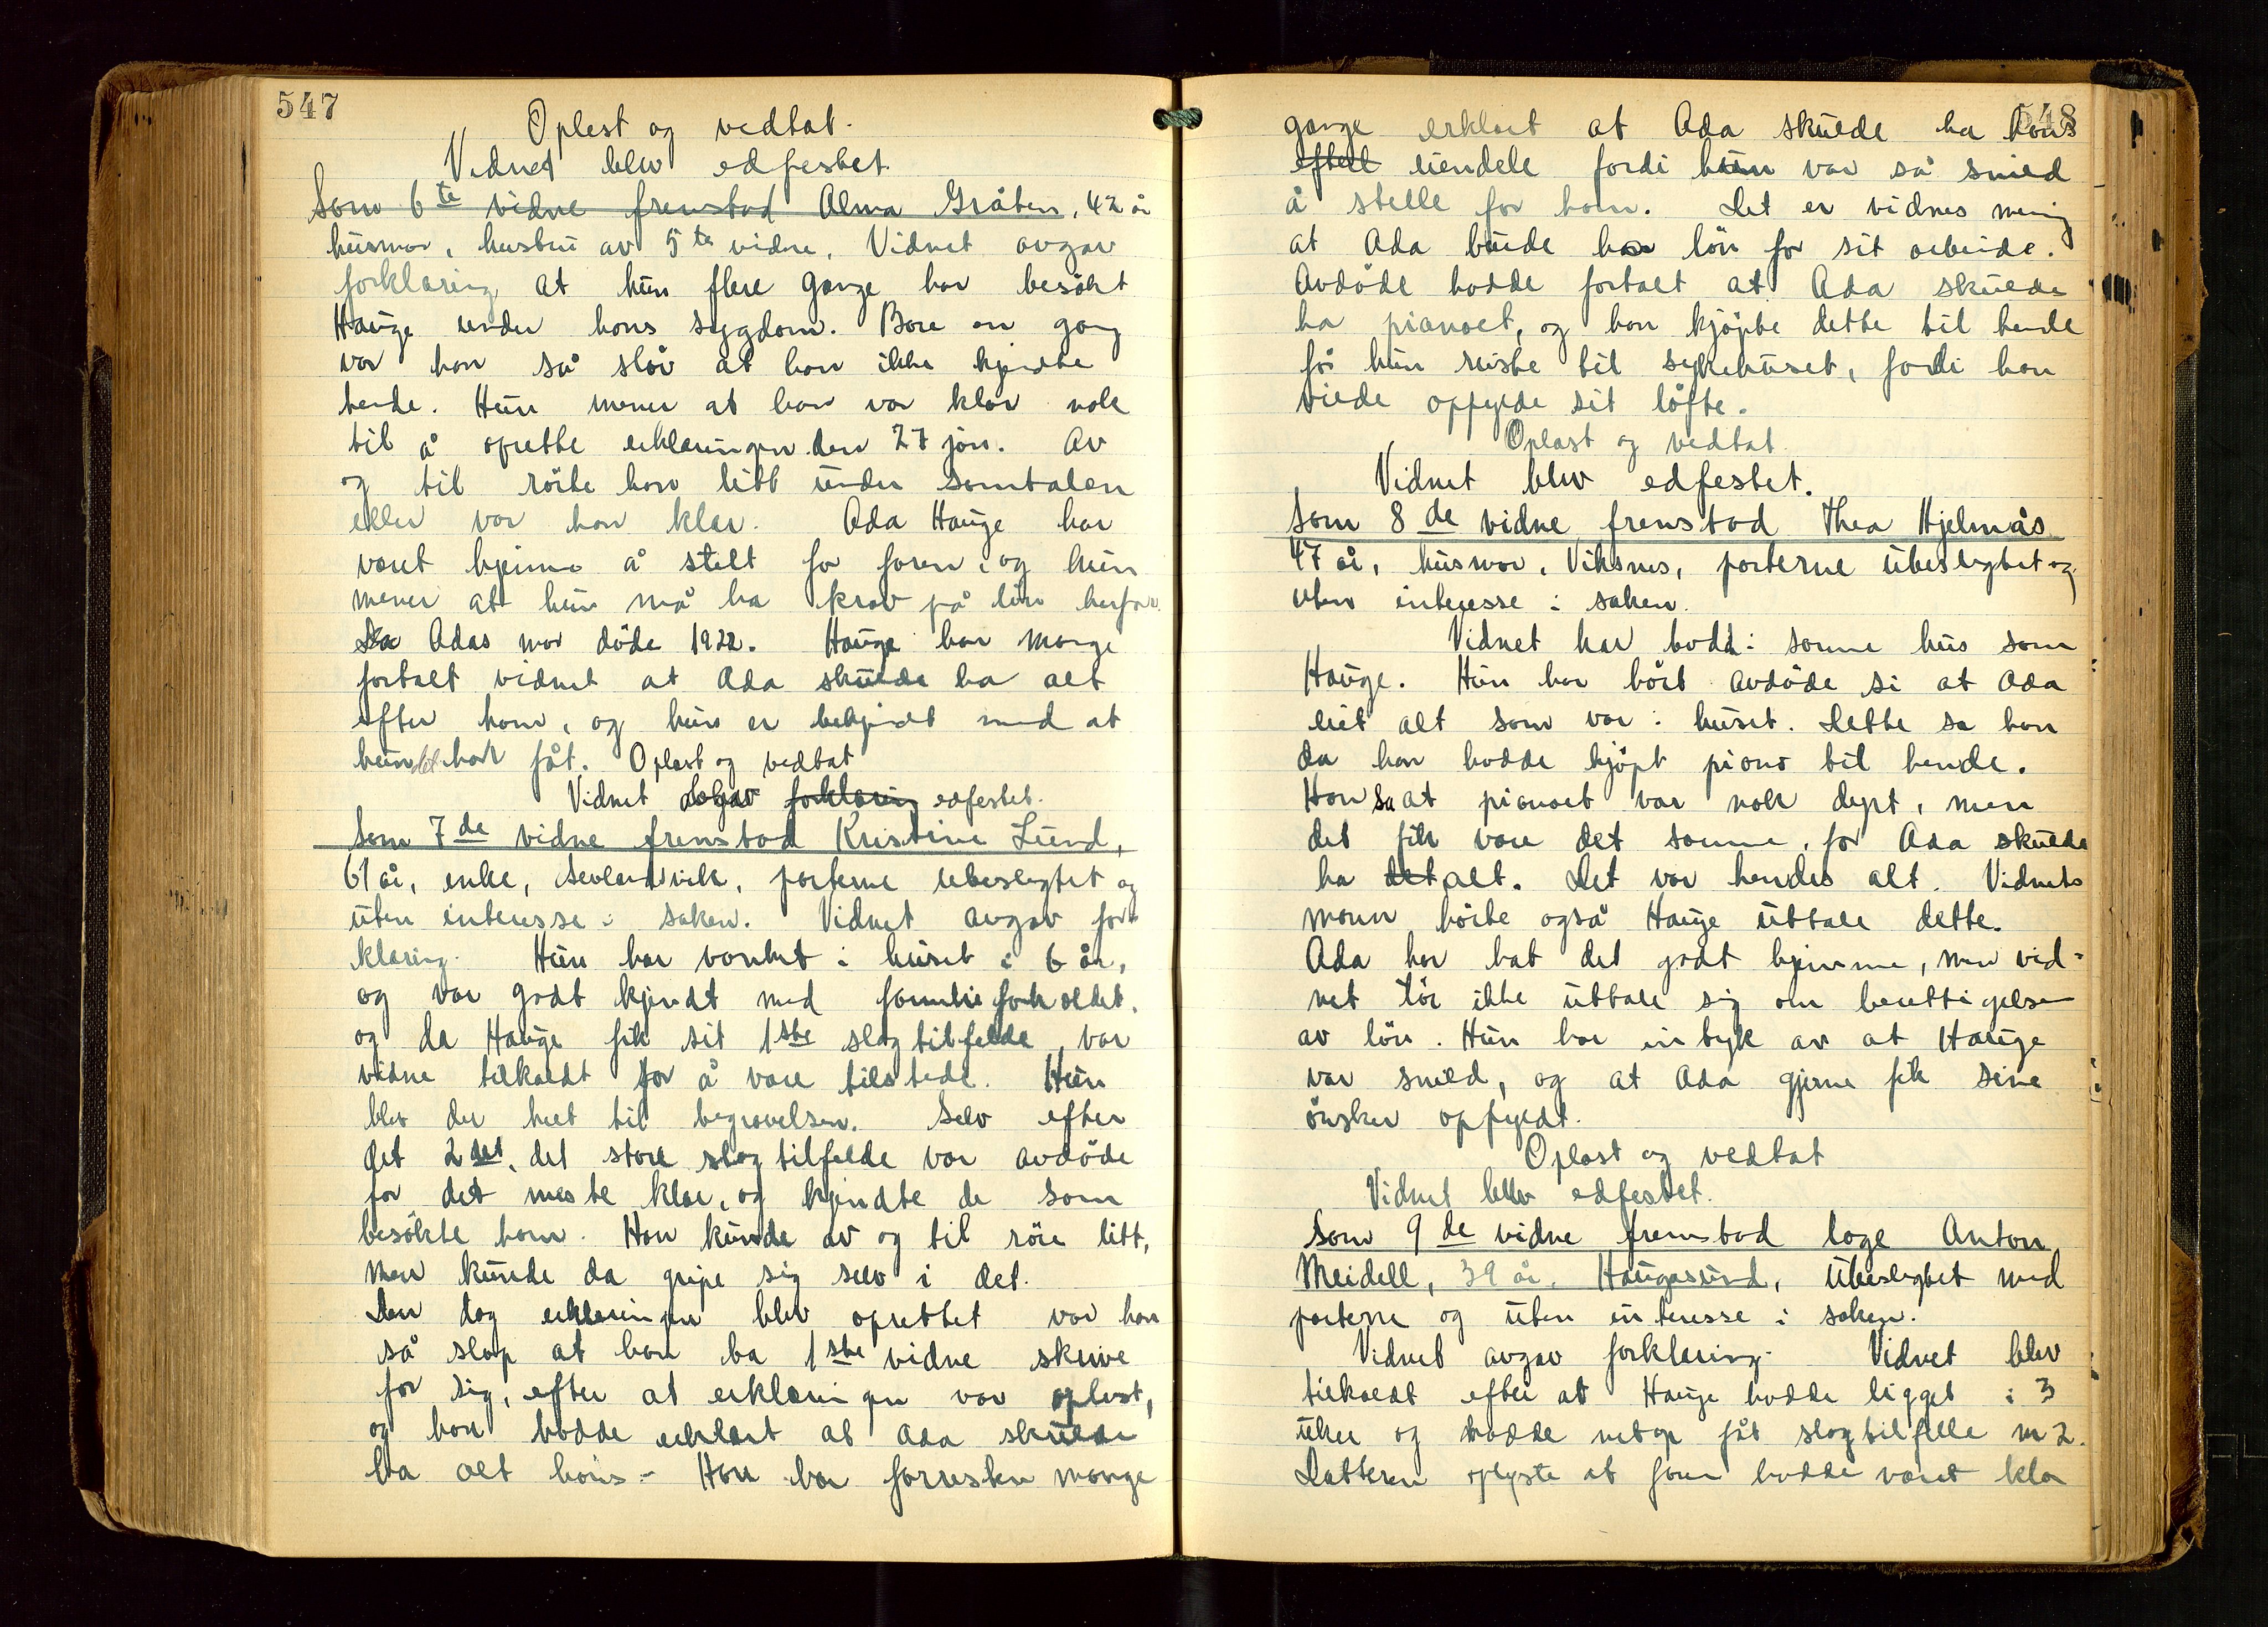 547
Oplest og vedtat.
Vidnet blev edfestet.
Som 6te vidne fremstod Alma Gråben, 42 år
husmor, hustru av 5te vidne. Vidnet avgav
forklaring at hun flere gange har besökt
Hauge under hans sygdom. Bare en gang
var han så slöv at han ikke kjendte
hende. Hun mener at han var klar nok
til å oprette erklæringen den 27 jan. Av
og til rörte han litt under samtalen
eller var han klar. Ada Hauge har
været hjemme å stelt for faren, og hun
mener at hun må ha krav på lön herfor.
Da Adas mor döde 1922. Hauge har mange
fortalt vidnet at Ada skulde ha alt
efter ham, og hun er bekjendt med at
hun det har fåt. Oplest og vedtat
Vidnet avgav forklaring edfestet.
Som 7de vidne fremstod Kristine Lund,
61 år, enke, Aevlandsvik, parterne ubeslegtet og
uten interesse i saken. Vidnet avgav for
klaring. Hun har vanket i huset i 6 år,
og var godt kjendt med familieforholdet,
og da Hauge fik sit 1ste slagtilfelde, var
vidne tilkaldt for å være tilstede. Hun
blev der helt til begravelsen. Selv efter
det 2det, det store slagtilfelde var avdöde
for det meste klar, og kjendte de som
besökte ham. Han kunde av og til röre litt,
men kunde da gripe sig selv i det.
Den dag erklæringen blev oprettet var han
så slap at han ba 1ste vidne skrive
for sig, efter at erklæringen var oplest,
og han hadde erklært at Ada skulde
ha alt hans - Han har forresten mange
548
gange erklært at Ada skulde ha hans
efterl eiendele fordi hun var så snild
å stelle for ham. Det er vidnes mening
at Ada burde ha lön for sit arbeide.
Avdöde hadde fortalt at Ada skulde
ha pianoet, og han kjöpte dette til hende
för hun reiste til sykehuset, fordi han
vilde opfylde sit löfte.
Oplæst og vedtat.
Vidnet blev edfestet.
Som 8de vidne fremstod Thea Hjelmås
47 år, husmor, Viksnes, parterne ubeslegtet og
uten interesse i saken.
Vidnet har bodd i samme hus som
Hauge. Hun har hört avdöde si at Ada
eiet alt som var i huset. Dette sa han
da han hadde kjöpt piano til hende.
Han sa at pianoet var nok dyrt, men
det fik være det samme, for Ada skulde
ha det alt. Det var hendes alt. Vidnets
mann hörte også Hauge uttale dette.
Ada har hat det godt hjemme, men vid-
net tör ikke uttale sig om berettigelsen
av lön. Hun har intryk av at Hauge
var snild, og at Ada gjerne fik sine
önsker opfyldt.
Oplæst og vedtat
Vidnet blev edfestet.
Som 9de vidne fremstod læge Anton
Meidell, 39 år, Haugesund, ubeslegtet med
parterne og uten interesse i saken.
Vidnet avgav forklaring. Vidnet blev
tilkaldt efter at Hauge hadde ligget i 3
uker og hadde netop fåt slagtilfelle nr 2.
Datteren oplyste at faren hadde været klar